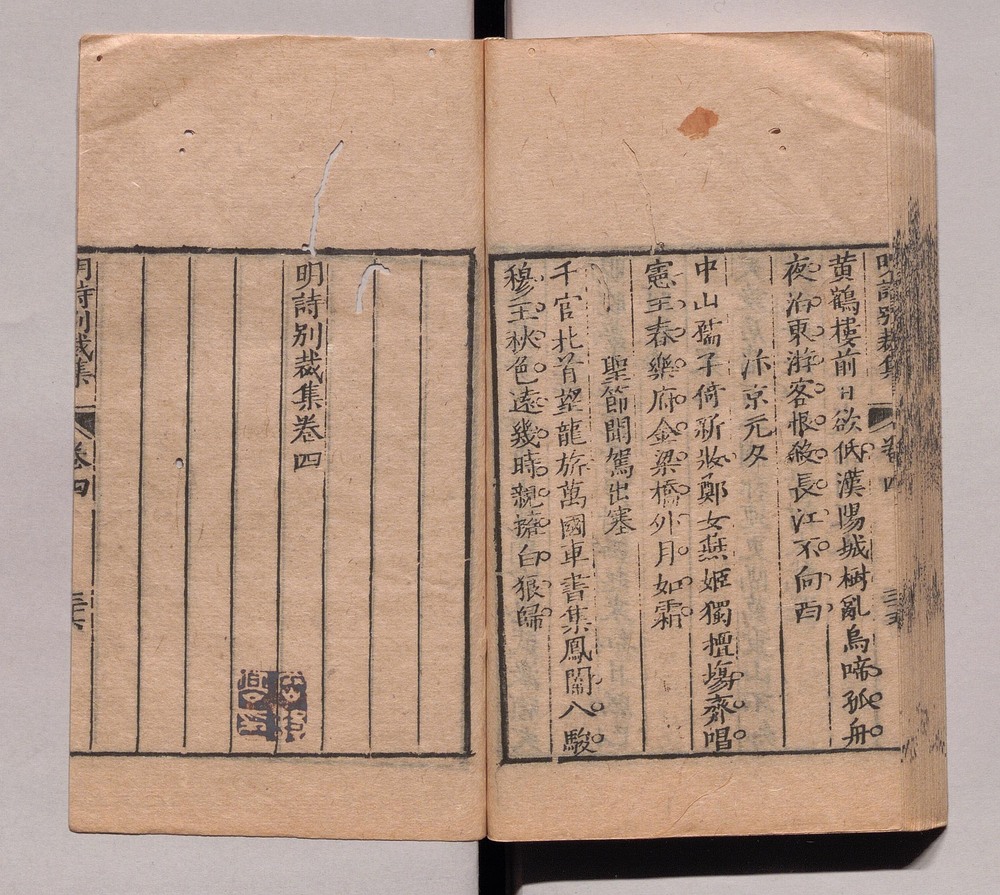 黃鶴樓前日欲低漢陽城樹亂烏啼孤舟
夜泊東游客恨殺長江不向西
汴京元夕
中山孺子倚新妝鄭女燕姬獨擅塲齊唱
憲王春樂府金梁橋外月如霜
聖節聞駕出塞
千官北首望龍旂萬國車書集鳳闈八駿
穆王秋色遠幾時親擁白狼歸
明詩別裁集卷四
明詩別裁集 卷四